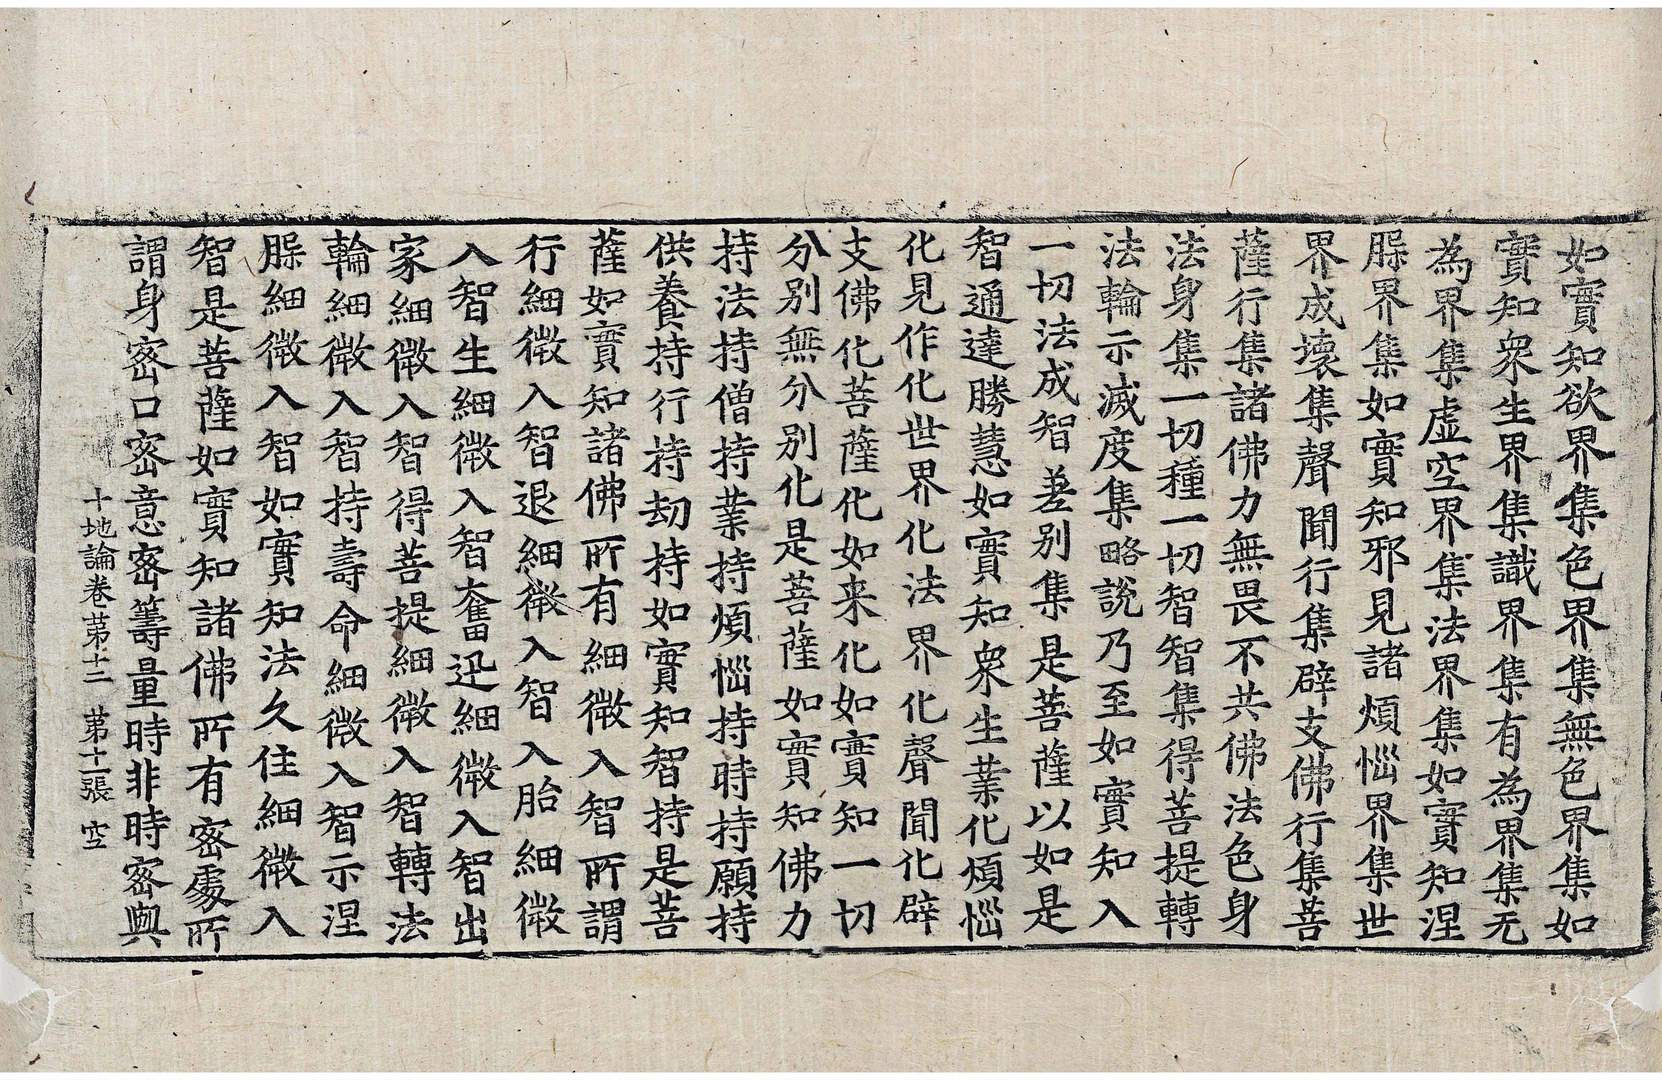 如實知欲界集色界集無色界集如
實知衆生界集識界集有為界集无
為界集虛空界集法界集如實知涅
脲界集如實知邪見諸煩惱界集世
界成壞集聲聞行集辟支佛行集菩
薩行集諸佛力無畏不共佛法色身
法身集一切種一切智智集得菩提轉
法輪示滅度集略說乃至如實知入
一切法成智差別集是菩薩以如是
智通達勝慧如實知衆生業化煩惱
化見作化世界化法界化聲聞化辟
支佛化菩薩化如来化如實知一切
分別無分別化是菩薩如實知佛力
持法持僧持業持煩惱持時持願持
供養持行持劫持如實知智持是菩
薩如實知諸佛所有細微入智所謂
行細微入智退細微入智入胎細微
入智生細微入智奮迅細微入智出
家細微入智得菩提細微入智轉法
輪細微入智持壽命細微入智示涅
脲細微入智如實知法久住細微入
智是菩薩如實知諸佛所有密處所
謂身密口密意密籌量時非時密與
十地論卷第十二　第十一張　空